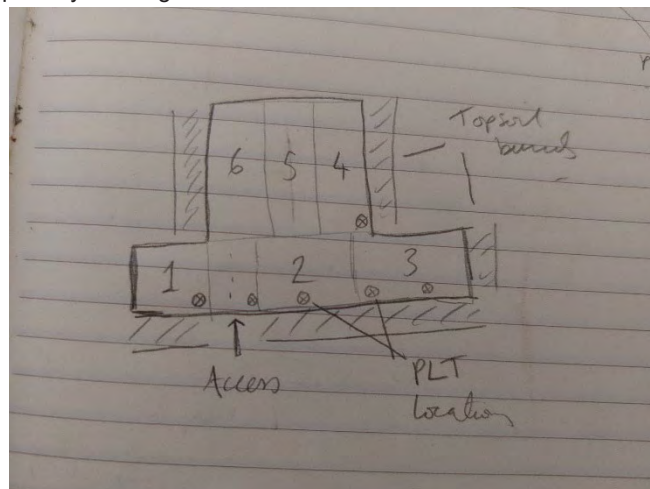 Topsoil
bunds
6 5 4
1 2 3
Access
PLT
locations